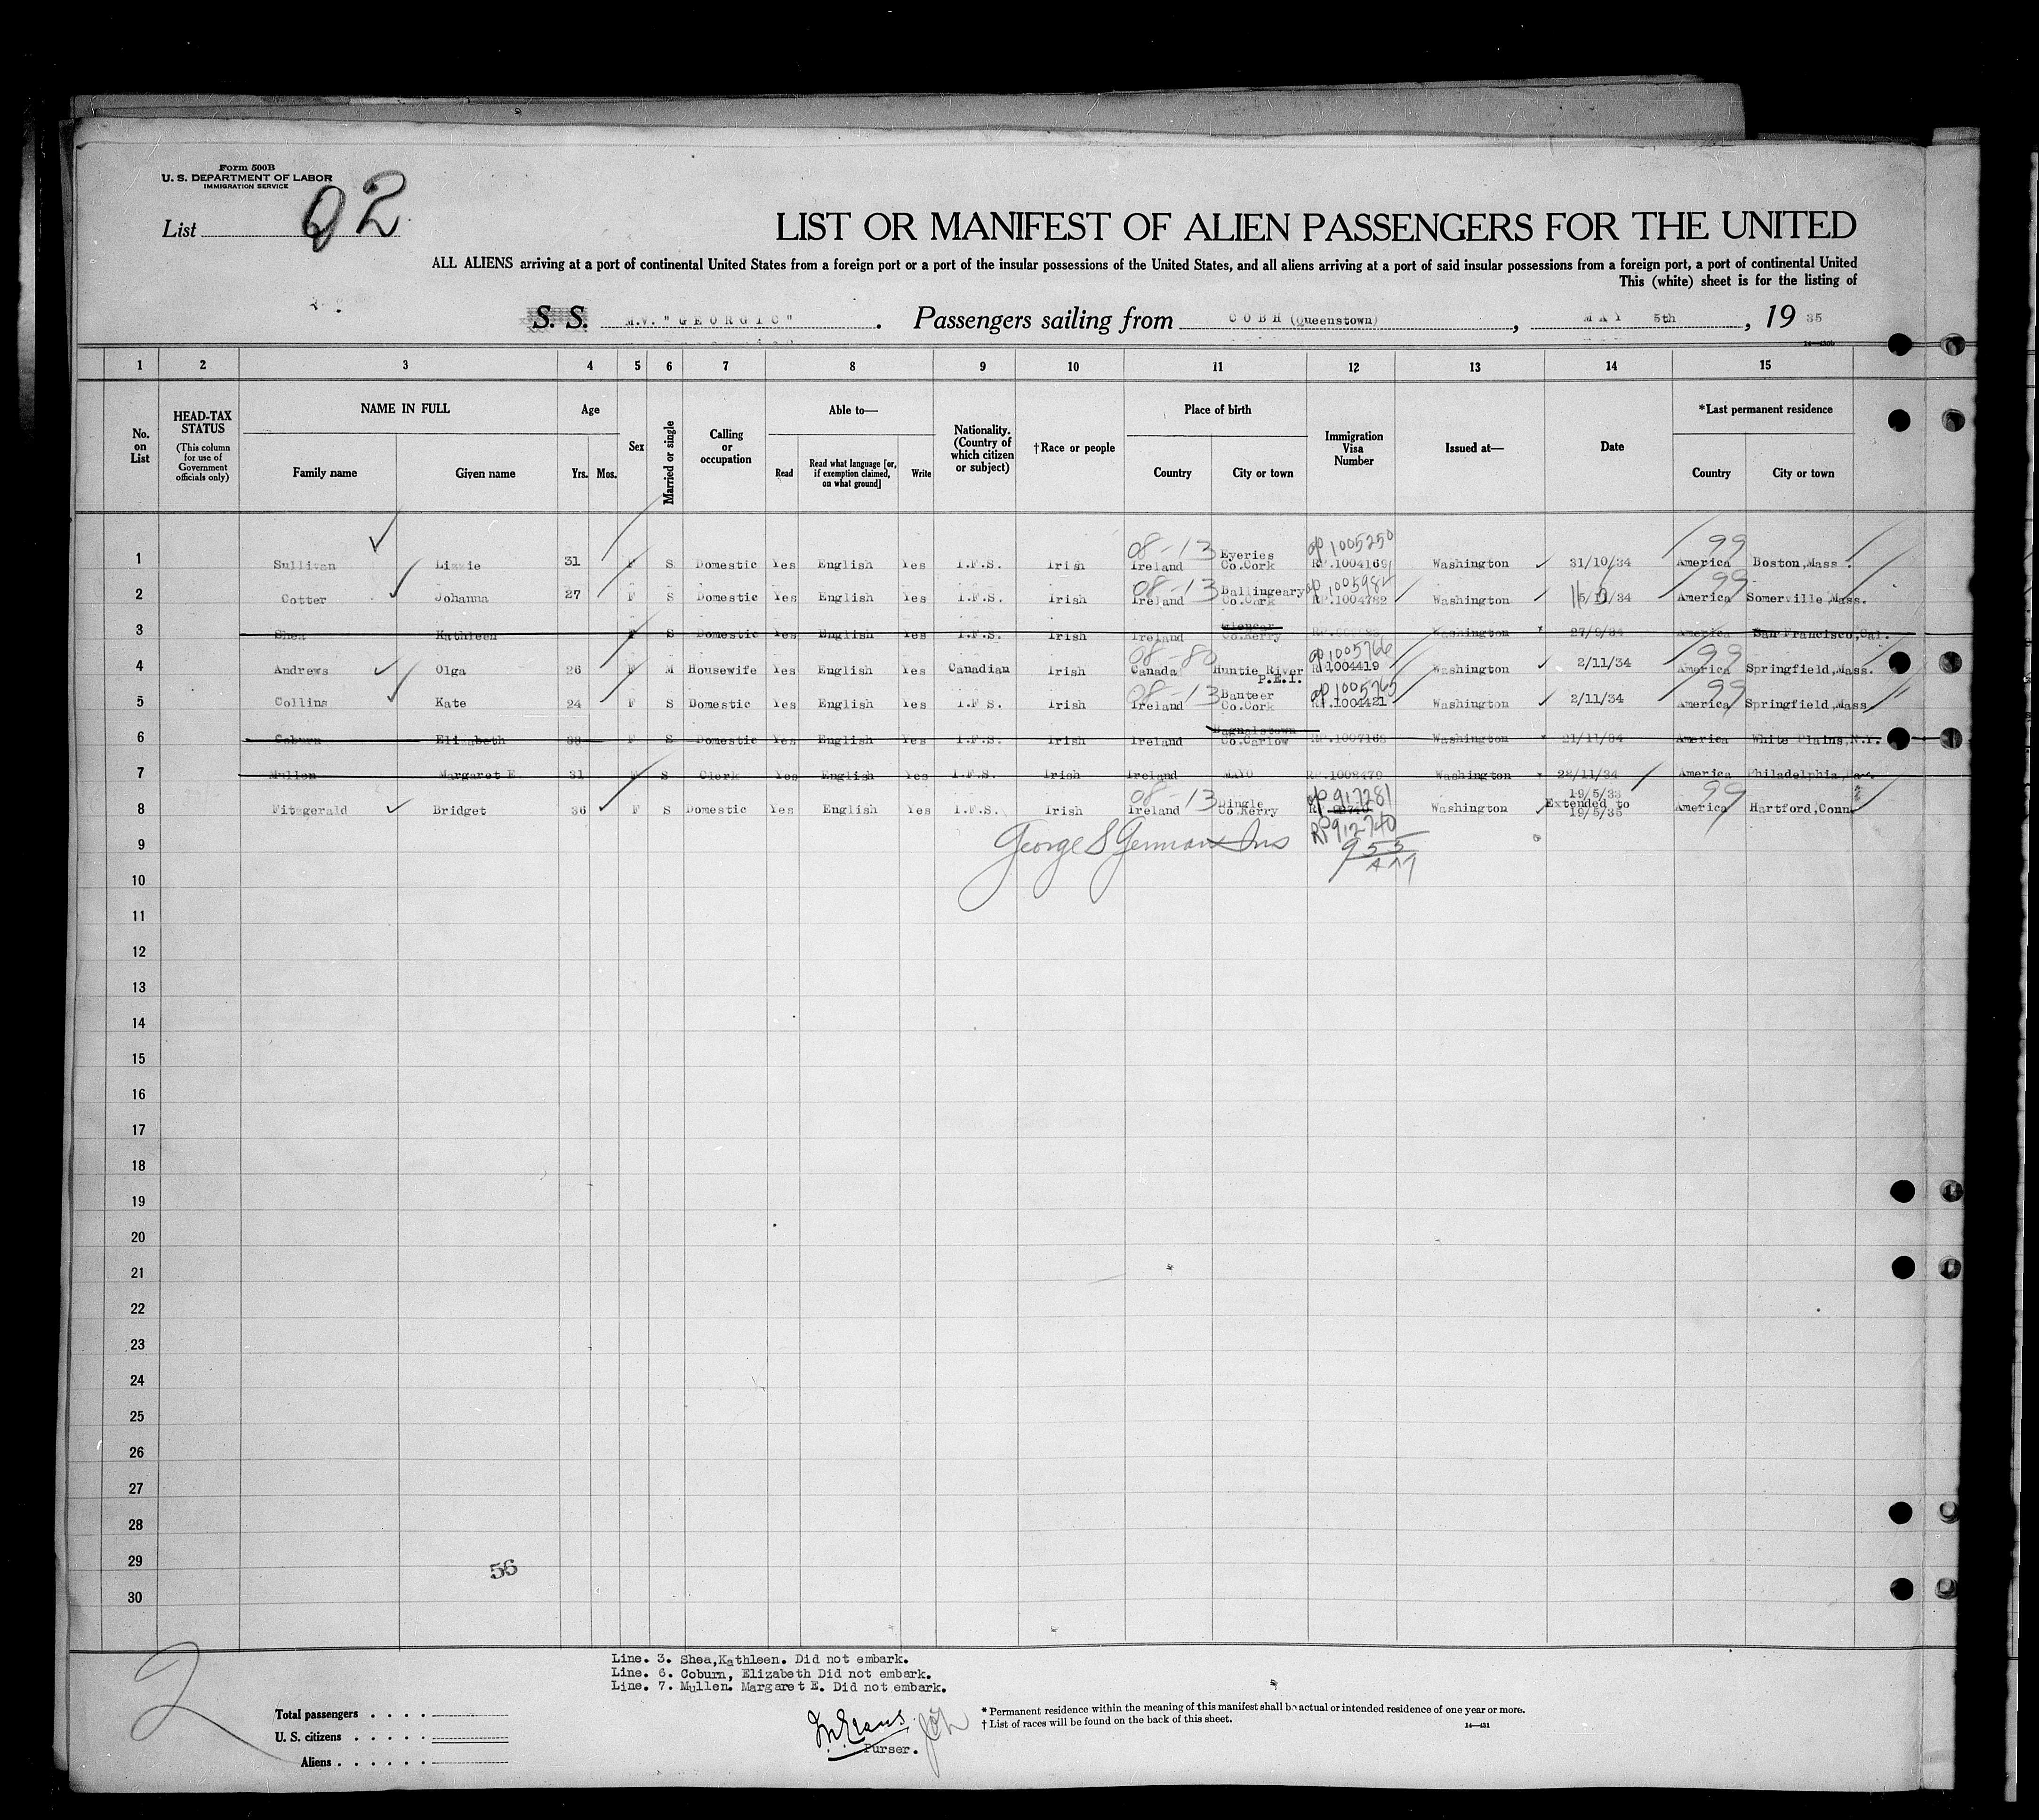 Form 500B
U. S. DEPARTMENT OF LABOR
IMMIGRATION SERVICE
List 92
LIST OR MANIFEST OF ALIEN PASSENGERS FOR THE UNITED
ALL ALIENS arriving at a port of continental United States from a foreign port or a port of the insular possessions of the United States, and all aliens arriving at a port of said insular possessions from a foreign port, a port of continental United
This (white) sheet is for the listing of
S. S. M.V. "GEORGIC". Passengers sailing from COBH (Queenstown), MAY 5th, 19 35
1 2 3 4 5 6 7 8 9 10 11 12 13 14 15
No. on List
HEAD-TAX STATUS
(This column for use of Government officials only)
NAME IN FULL
Family name Given name
Age
Yrs. Mos.
Sex
Married or single
Calling or occupation
Able to—
Read Read what language [or, if exemption claimed, on what ground] Write
Nationality. (Country of which citizen or subject)
†Race or people
Place of birth
Country City or town
Immigration Visa Number
Issued at—
Date
*Last permanent residence
Country City or town
1 Sullivan Lizzie 31 F S Domestic Yes English Yes I.F.S. Irish 08-13 Ireland Eyeries Co.Cork 1005250 RP.1004169 Washington 31/10/34 99 America Boston,Mass.
2 Cotter Johanna 27 F S Domestic Yes English Yes I.F.S. Irish 08-13 Ireland Ballingeary Co.Cork RP.1004782 Washington America 99 Somerville,Mass.
3 Shea Kathleen F S Domestic Yes English Yes I.F.S. Irish Ireland Glencar Co.Kerry Washington 27/9/34 America San Francisco,Cal.
4 Andrews Olga 26 F M Housewife Yes English Yes Canadian Irish 08-80 Canada Huntie River P.E.I. 1005766 RP.1004419 Washington 2/11/34 99 America Springfield,Mass.
5 Collins Kate 24 F S Domestic Yes English Yes I.F.S. Irish 08-13 Ireland Banteer Co.Cork 1005765 RP.1004421 Washington 2/11/34 99 America Springfield,Mass
6 Coburn Elizabeth F S Domestic Yes English Yes I.F.S. Irish Ireland Bagnalstown Co.Carlow RP.1007168 Washington 21/11/34 America White Plains,N.Y.
7 Mullen Margaret E 31 F S Clerk Yes English Yes I.F.S. Irish Ireland MAYO RP.1008470 Washington 28/11/34 America Philadelphia,Pa.
8 Fitzgerald Bridget 36 F S Domestic Yes English Yes I.F.S. Irish 08-13 Ireland Dingle Co.Kerry 917281 RP912740 Washington 19/5/33 Extended to 19/5/35 99 America Hartford,Conn.
9 George S German Ins 9 53 AM
10
11
12
13
14
15
16
17
18
19
20
21
22
23
24
25
26
27
28
29
56
30
2
Line. 3. Shea,Kathleen. Did not embark.
Line. 6. Coburn, Elizabeth Did not embark.
Line. 7. Mullen. Margaret E. Did not embark.
Total passengers
U. S. citizens
Aliens
Purser.
* Permanent residence within the meaning of this manifest shall be actual or intended residence of one year or more.
† List of races will be found on the back of this sheet.
14—431